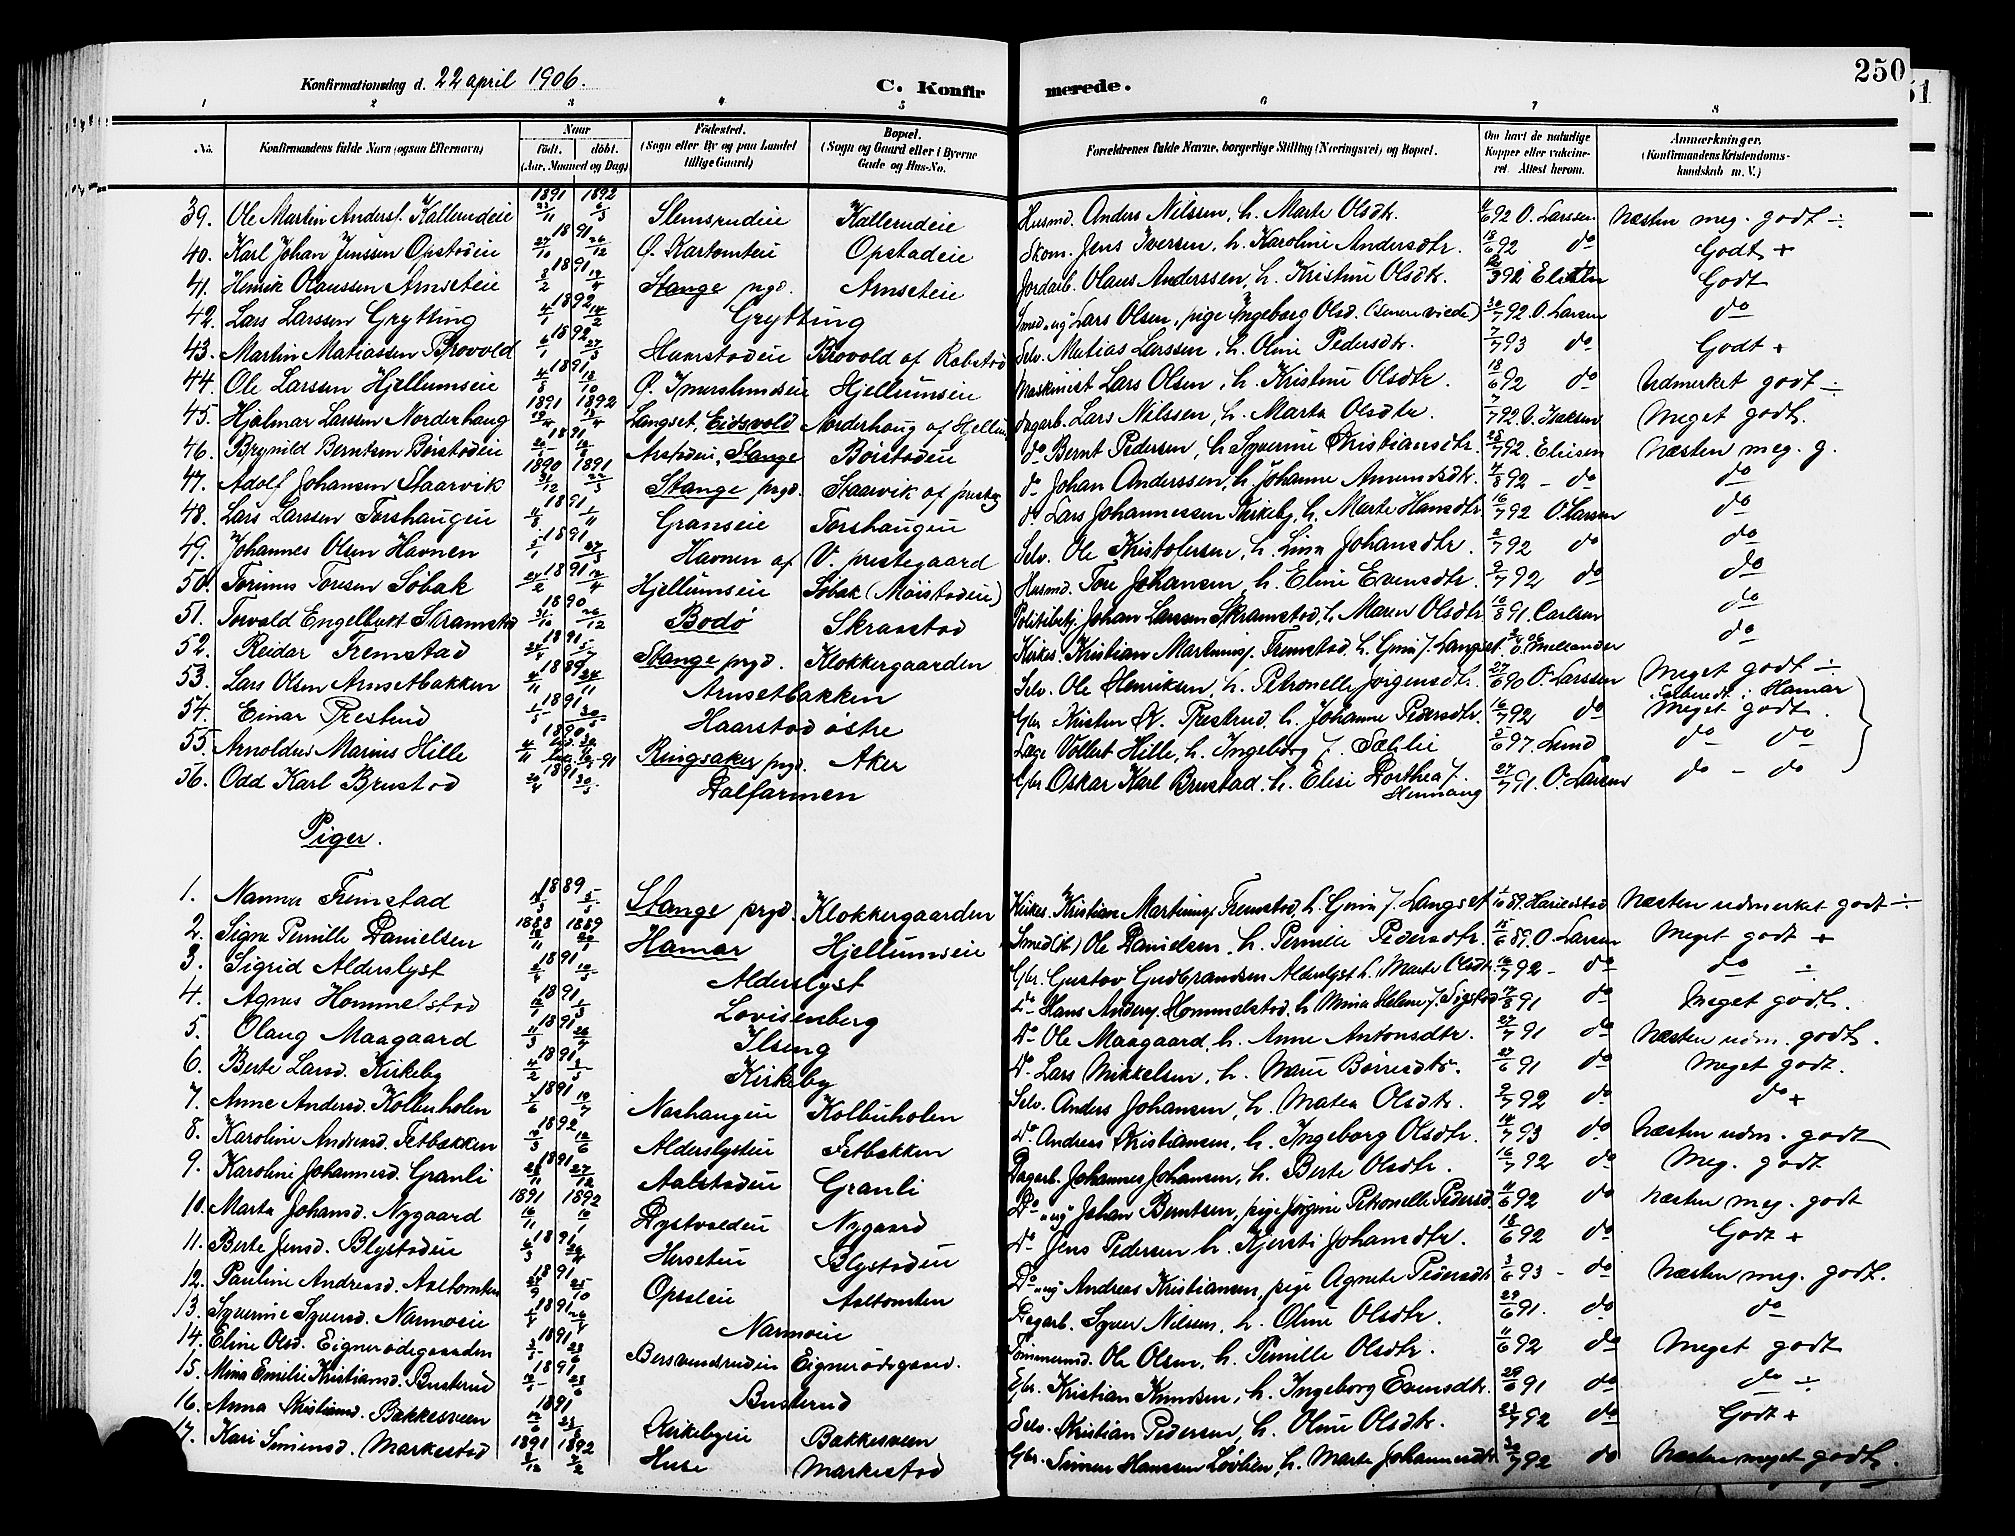 250
Konfirmationsdag d. 22 april 1906.
C. Konfirmerede.
1 2 3 4 5 6 7 8
No. Konfirmandens fulde Navn (ogsaa Efternavn) Naar født. døbt. (Aar, Maaned og Dag) Fødested. (Sogn eller By og paa Landet tillige Gaard) Bopæl. (Sogn og Gaard eller i Byerne Gade og Hus-No. Forældrenes fulde Navne, borgerlige Stilling (Næringsvei) og Bopæl. Om havt de naturlige Kopper eller vakcineret. Attest herom. Anmerkninger. (Konfirmandens Kristendomskundskab m. V.)
39. Ole Martin Anders. Kallerudeie 1891 23/11 1892 6/3 Slemsrudeie Kallerudeie Husmd. Anders Nilssen, h. Marte Olsdtr. 92 O. Larssen Næsten meg. godt ÷
40. Karl Johan Jenssen Opstadeie 1891 27/10 26/12 Opstadeie Skom. Jens Iversen, h. Karoline Andersdtr. 18/6 92 do Godt +
41. Henrik Olaussen Arnseteie 1891 8/2 19/4 Stange prgd. Arnseteie Jordarb. Olaus Anderssen, h. Kristine Olsdtr. 92 Godt
42. Lars Larssen Grytting 1892 4/1 14/2 Grytting Smed "ug" Lars Olsen, pige Ingeborg Olsd. (senere viede) 30/7 92. O. Larsen do
43. Martin Matiassen Brovold 1892 6/1 27/3 Hamstadeie Brovold af Rabstad Selv. Matias Larssen, h. Oline Pedersdtr. 7/7 93 do Godt +
44. Ole Larssen Hjellumseie 1891 4/8 18/10 Hjellumseie Maskinist Lars Olsen, h. Kristine Olsdtr. 18/6 92 do Udmerket godt ÷
45. Hjalmar Larssen Norderhaug 1891 1892 Langset, Eidsvold Norderhaug af Hjellum Dagarb. Lars Nilssen, h. Marta Olsdtr. 7/7 92. Meget godt.
46. Brynild Berntsen Børstadeie 1891 Arstadeie, Stange Børstadeie do Bernt Pedersen, h. Syverine Kristiansdtr. 25/7 92. Eliesen Næsten meg. g.
47. Adolf Johansen Staarvik 1890 31/12 1891 22/3 Stange prgd. Staarvik af do Johan Anderssen, h. Johanne Amundsdtr. 4/8 92 - do do
48. Lars Larssen Torshaugen 1891 11/8 1/11 Granseie Torshaugen do Lars Johannessen Kirkeby, h. Marte Hansdtr. 16/7 92 O. Larsen do
49. Johannes Olsen Havnen 1891 27/3 Havnen af V. prestegaard Selv. Ole Kristofersen, h. Lina Johansdtr. 2/7 92 do do
50. Torinus Toresen Sobak 1891 24/2 12/4 Hjellumseie Sobak (Moistadeie) Husmd. Tore Johansen, h. Eline Evensdtr. 2/7 92 do do
51. Torvald Engelbret Skramstad 1890 31/10 26/12 Bodø Skramstad Politibetj. Johan Larssen Skramstad, h. Maren Olsdtr. 16/8 91. Carlsen do
52. Reidar Fremstad 1891 24/4 5/7 Stange prgd. Klokkergaarden Kirkes. Kristian Martinus. Fremstad, h. Gina f. Langset. Mellander do
53. Lars Olsen Arnsetbakken 1889 24/11 Arnsetbakken Selv. Ole Henriksen, h. Petronelle Jørgensdtr. 27/6 90 O. Larssen Meget godt ÷
54. Einar Prestrud 1891 30/5 Haarstad østre Gbr. Kristen Prestrud, h. Johanne Pedersdtr. 16/7 92 do i Hamar Meget godt.
55. Arnoldus Marius Hille 1890 91 Ringsaker prgd. Aker Læge Vollert Hille, h. Ingeborg f. Sælie 97. Lund do do
56. Odd Karl Brustad 1891 20/4 30/5 Dalfarmen Gbr. Oskar Karl Brustad, h. Elise Dorthea f. Hennang 27/7 91. O. Larsen do - do
Piger.
1. Nanna Fremstad 1889 Stange prgd. Klokkergaarden Kirkes. Kristian Martinus. Fremstad, h. Gina f. Langset 89. Næsten udmerket godt ÷
2. Signe Pernille Danielsen 1888 1889 Hamar Hjellumseie Smed Ole Danielsen, h. Pernille Pedersdtr. 89. O. Larsen Meget godt +
3. Sigrid Alderslyst 1891 Alderslyst Gbr. Gustav Gudbrandsen Alderslyst h. Marte Olsdtr. 16/7 92 - do do ÷
4. Agnes Hommelstad 1891 Lovisenberg do Hans Anders. Hommelstad, h. Mina Helene f. Sigstad 17/8 91 do Meget godt.
5. Olaug Maagaard 1891 Ilseng do Ole Maagaard, h. Anne Antonsdtr. 27/7 91 do Næsten udm. godt.
6. Berte Larsd. Kirkeby 1891 4/2 Kirkeby do Lars Mikkelsen, h. Marie 91 do Meget godt.
7. Anne Andersd. Kolbuholen 1891 19/7 Nashaugen Kolbuholen Selv. Anders Johansen, h. Matea Olsdtr. 2/7 92 do do +
8. Karoline Andreasd. Fetbakken 1892 Alderslysteie Fetbakken do Andreas Kristiansen, h. Ingeborg Olsdtr. 93 do Næsten udm. godt
9. Karoline Johannesd. Granli 1891 27/12 Aalstadeie Granli Dagarb. Johannes Johansen, h. Berte Olsdtr. 16/7 92 do Meg. godt
10. Marta Johansd. Nygaard 1891 16/11 1892 Dystvoldeie Nygaard do "ug" Johan Berntsen, pige Jørgine Petronelle Pedersd. 11/6 92 do Næsten meg. godt
11. Berte Jensd. Blystadeie 1891 Herseteie Blystadeie do Jens Pedersen h. Kjersti Johansdtr. 18/6 92 do Godt +
12. Pauline Andreasd. Aaltomten 1891 25/10 Opsaleie Aaltomten do "ug" Andreas Kristiansen, pige Agnete Pedersdtr. 3/6 93 - do Næsten meg. godt.
13. Syverine Syversd. Narmoeie 1891 Narmoeie Dagarb. Syver Nilsen, h. Oline Olsdtr. 29/6 91. do do
14. Eline Olsd. Eignerødegaarden 1891 Bersvendsrudeie Eignerødegaard. Tømmermd. Ole Olsen, h. Pernille Olsdtr. 11/6 92 do Meget godt
15. Mina Emilie Kristiansd. Busterud 1891 Busterud Gbr. Kristian Knudsen, h. Ingeborg Evensdtr. 29/6 91 do do ÷
16. Anna Kristiansd. Bakkesveen 1891 Kirkebyeie Bakkesveen Selv. Kristian Pedersen, h. Oline Olsdtr. 23/7 92 do Godt +
17. Kari Simensd. Markestad 1891 1892 Huse Markestad Gbr. Simen Hanssen Løvlien, h. Marte Johannesdtr. 92 do Næsten meget godt.